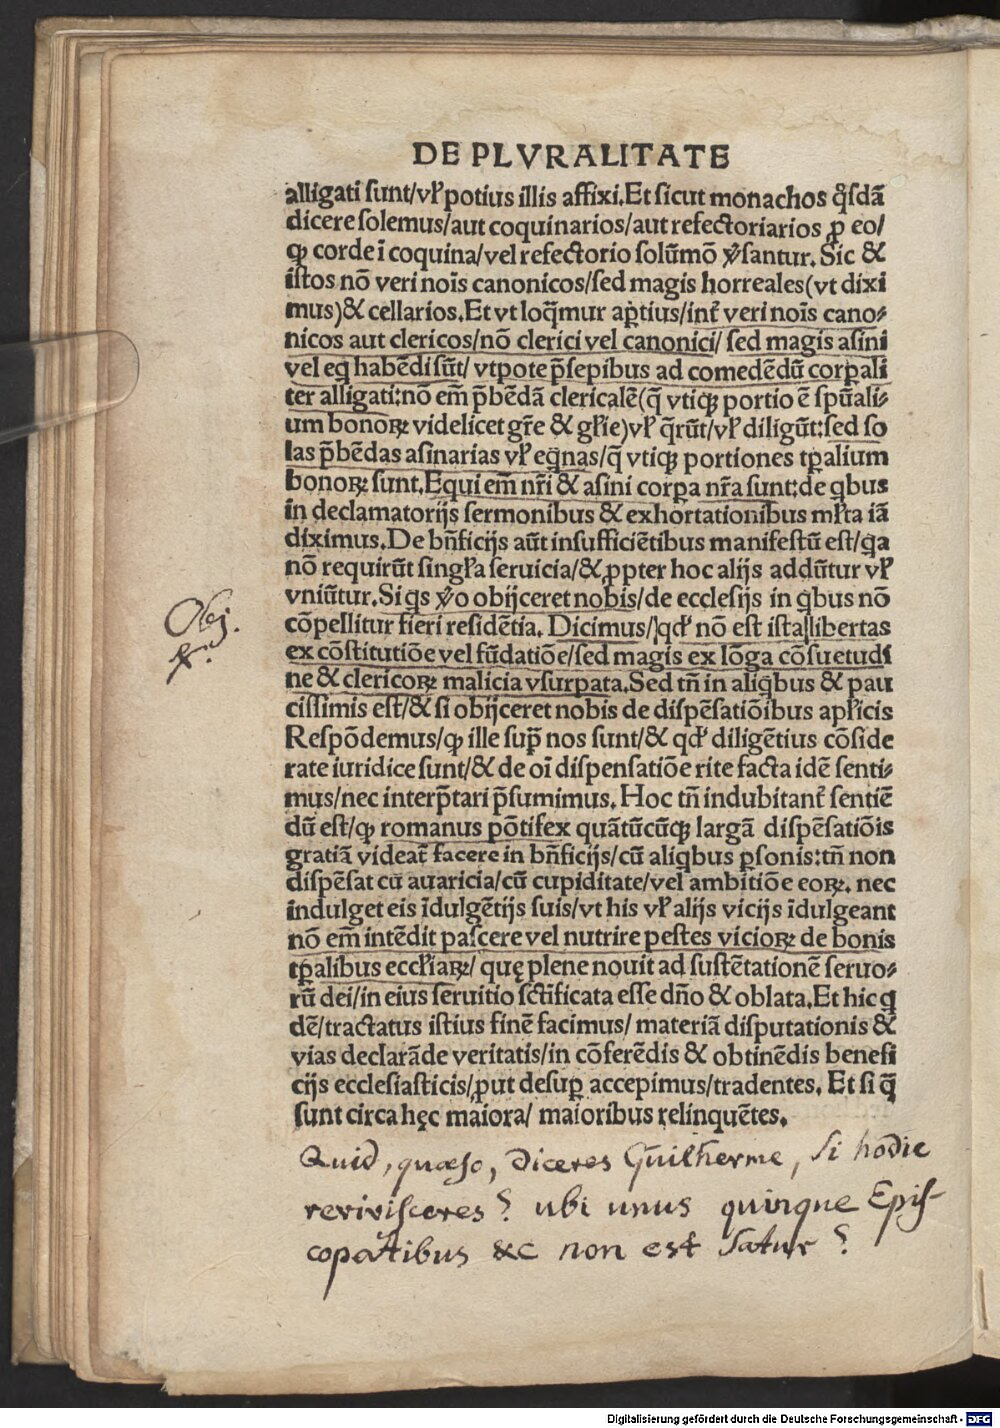 DE PLVRALITATE
alligati sunt/vł potius illis affixi.Et sicut monachos q̃sdã
dicere solemus/aut coquinarios/aut refectoriarios ꝓ eo/
ꝙ corde ĩ coquina/vel refectorio solũmõ v̾santur. Sic &
istos nõ veri noĩs canonicos/sed magis horreales(vt dixi
mus)& cellarios.Et vt loq̃mur aꝑtius/int̃ veri noĩs cano⸗
nicos aut clericos/nõ clerici vel canonici/ sed magis asini
vel eq̇ habẽdi sũt/ vtpote p̃sepibus ad comedẽdũ corꝑali
ter alligati:nõ em̃ p̃bẽdã clericalẽ(q̃ vtiqꝫ portio ẽ spũali⸗
um bonoꝝ videlicet gr̃e & głie)vł q̃rũt/vł diligũt:sed so
las p̃bẽdas asinarias vł eq̇nas/q̃ vtiqꝫ portiones tꝑalium
bonoꝝ sunt.Equi em̃ nr̃i & asini corꝑa nr̃a sunt:de q̇bus
in declamatorijs sermonibus & exhortationibus młta iã
diximus.De bñficijs aũt insufficiẽtibus manifestũ est/q̇a
nõ requirũt singła seruicia/& ꝓpter hoc alijs addũtur vł
vniũtur.Si q̇s v̾o obijceret nobis/de ecclesijs in q̇bus nõ
cõpellitur fieri residẽtia. Dicimus/qđ nõ est ista libertas
ex cõstitutiõe vel fũdatiõe/sed magis ex lõga cõsuetudi
ne & clericoꝝ malicia vsurpata.Sed tñ in aliq̇bus & pau
cissimis est/& si obijceret nobis de dispẽsatiõibus apłicis
Respõdemus/ꝙ ille sup̃ nos sunt/& qđ diligẽtius cõside
rate iuridice sunt/& de oĩ dispensatiõe rite facta idẽ senti⸗
mus/nec interp̃tari p̃sumimus. Hoc tñ indubitant̃ sentiẽ
dũ est/ꝙ romanus põtifex quãtũcũqꝫ largã dispẽsatiõis
gratiã videat̃ facere in bñficijs/cũ aliq̇bus ꝑsonis:tñ non
dispẽsat cũ auaricia/cũ cupiditate/vel ambitiõe eoꝝ. nec
indulget eis ĩdulgẽtijs suis/vt his vł alijs vicijs ĩdulgeant
nõ em̃ intẽdit pascere vel nutrire pestes vicioꝝ de bonis
tꝑalibus eccłiaꝝ/ quę plene nouit ad sustẽtationẽ seruo⸗
rũ dei/in eius seruitio sc̃tificata esse dño & oblata.Et hic q̇
dẽ/tractatus istius finẽ facimus/ materiã disputationis &
vias declarãde veritatis/in cõferẽdis & obtinẽdis benefi
cijs ecclesiasticis/ꝓut desuꝑ accepimus/tradentes. Et si q̃
sunt circa hęc maiora/ maioribus relinquẽtes.
Obj.
Quid, quæso, diceres Guilhelme, si hodie
revivisceres? ubi unus quinque Epis-
copatibus &c non est satur?
Digitalisierung gefördert durch die Deutsche Forschungsgemeinschaft - DFG